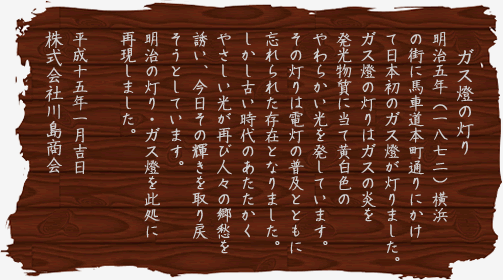 ガス燈の灯り
明治五年(一八七二)横浜
の街に馬車道本町通りにかけ
て日本初のガス燈が灯りました。
ガス燈の灯りはガスの炎を
発光物質に当て黄白色の
やわらかい光を発しています。
その灯りは電灯の普及とともに
忘れられた存在となりました。
しかし古い時代のあたたかく
やさしい光が再び人々の郷愁を
誘い、今日その輝きを取り戻
そうとしています。
明治の灯り・ガス燈を此処に
再現しました。
平成十五年一月吉日
株式会社川島商会